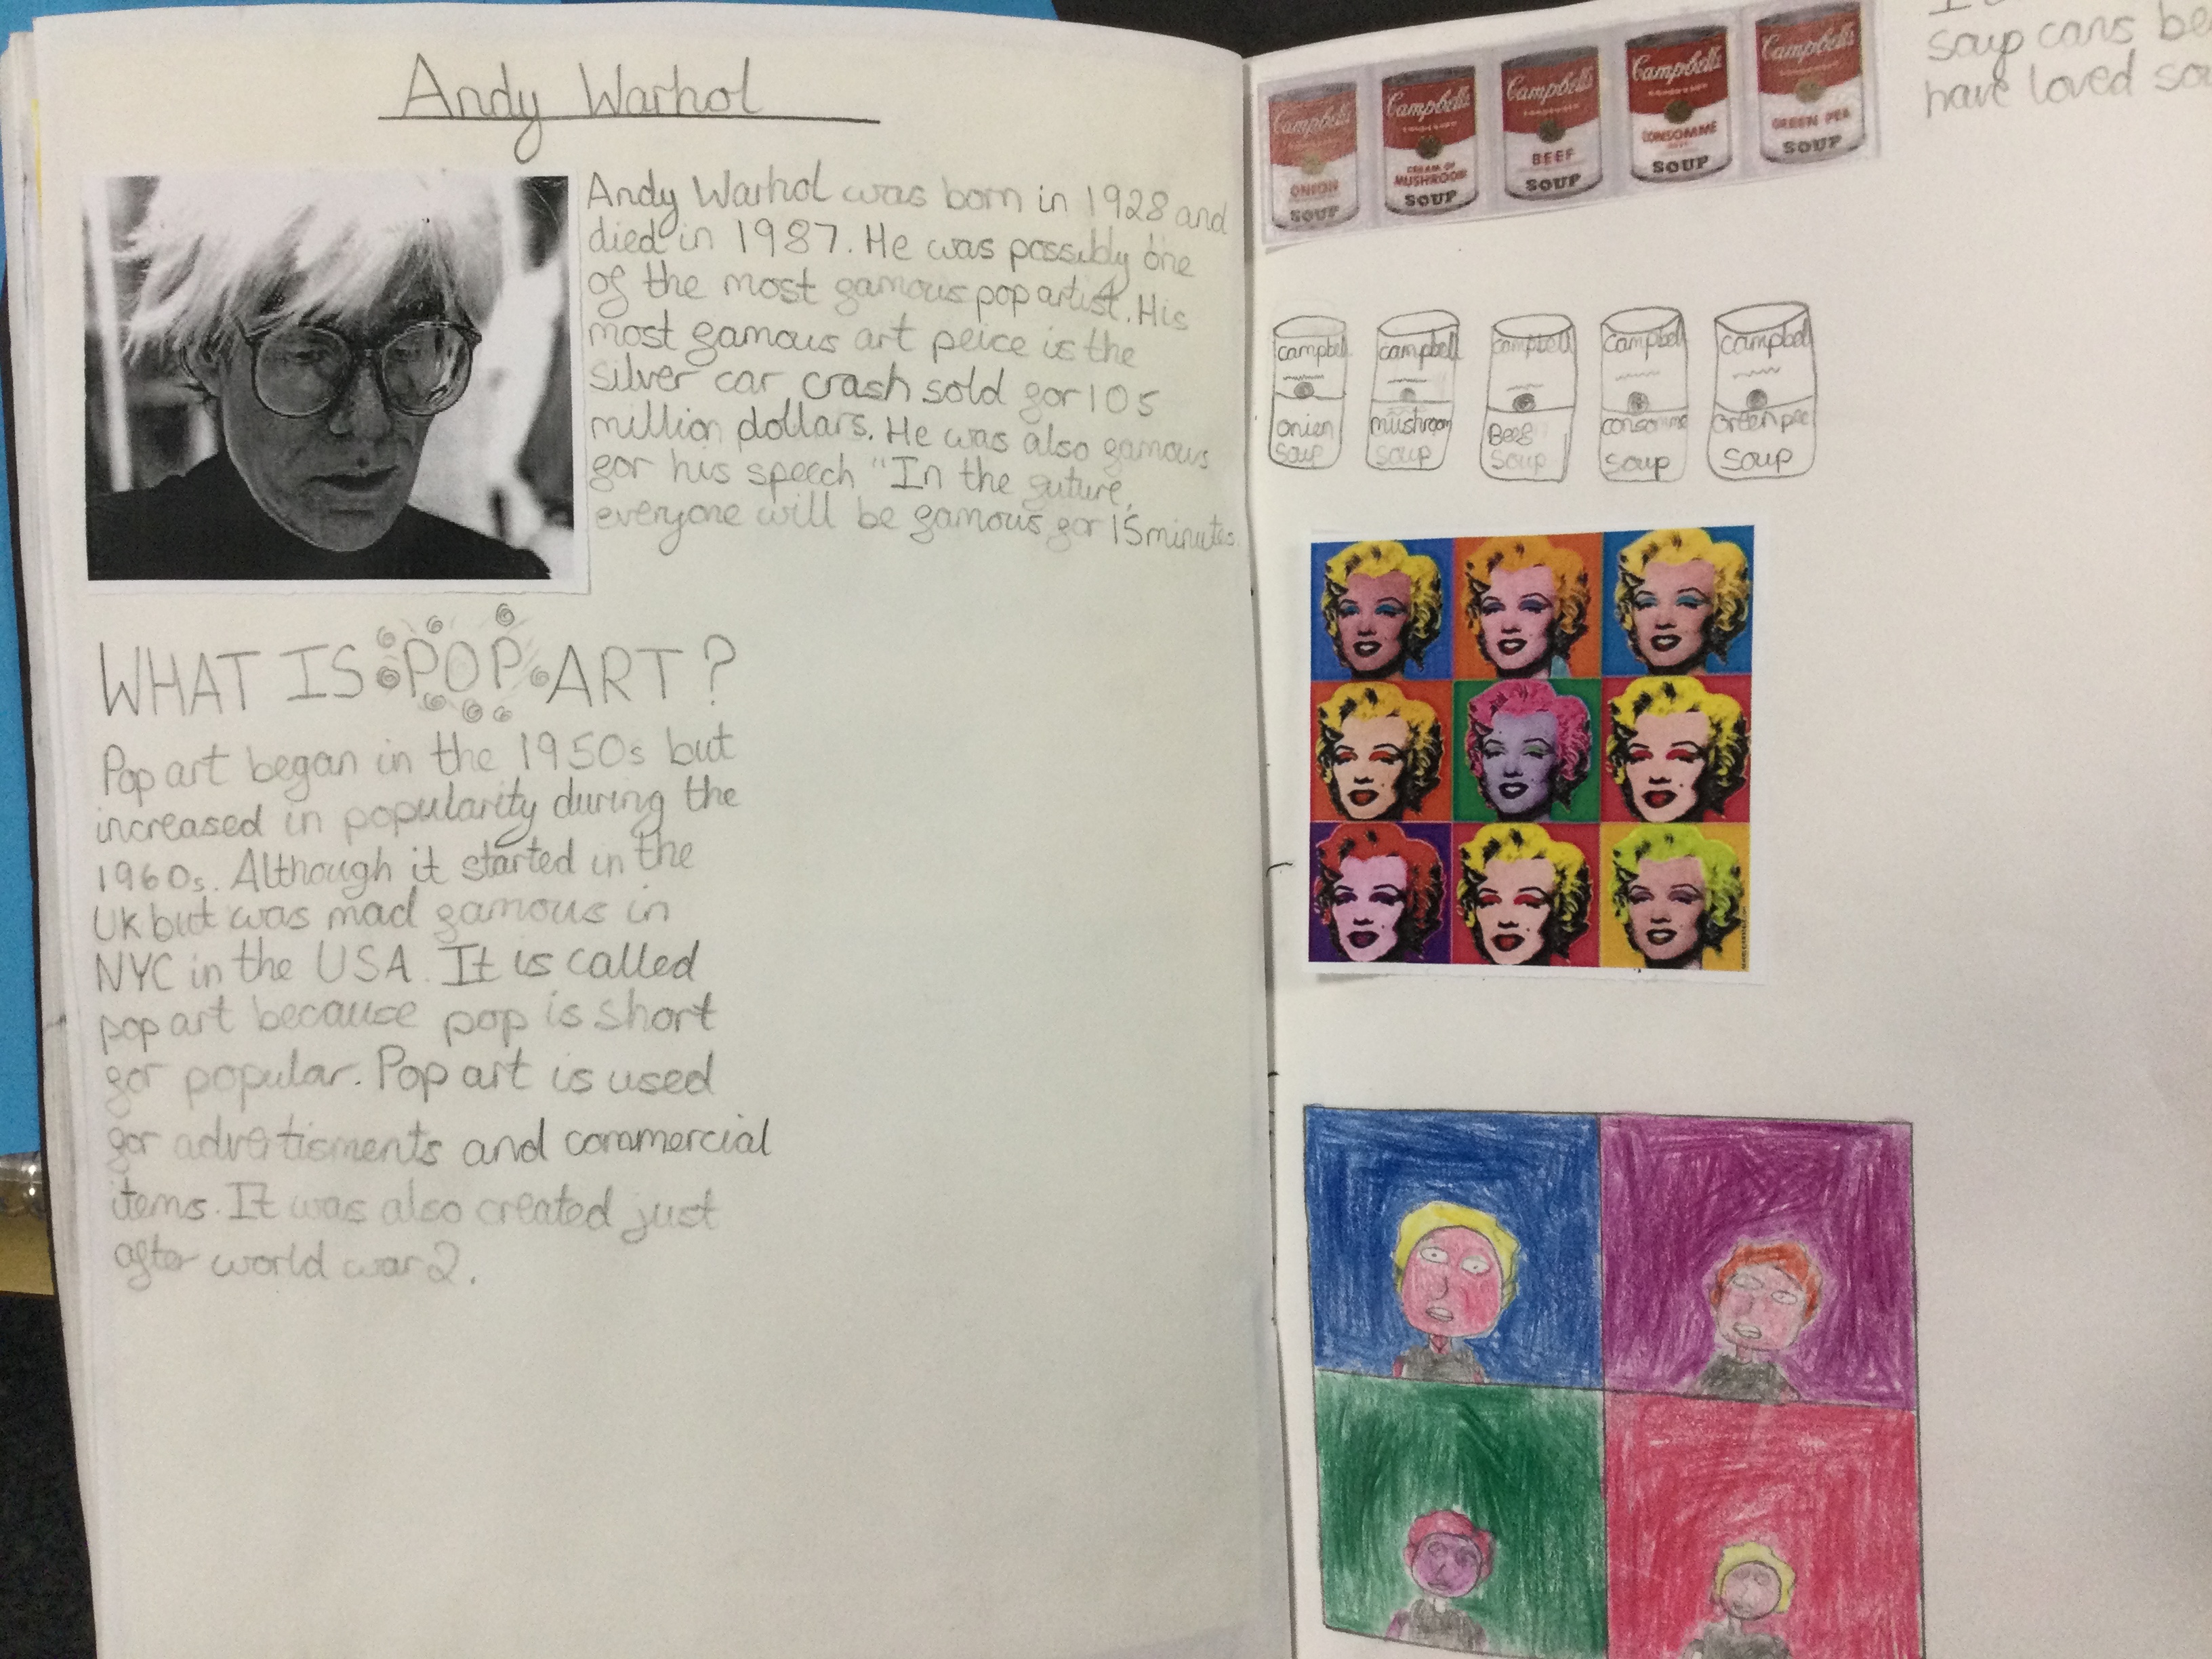 Andy Warhol
Andy Warhol was born in 1928 and
died in 1987. He was possibly one
of the most famous pop artist. His
most famous art peice is the
silver car crash sold for 105
million dollars. He was also famous
for his speech "In the future,
everyone will be famous for 15 minutes.
WHAT IS POP ART?
Pop art began in the 1950s but
increased in popularity during the
1960s. Although it started in the
UK but was mad famous in
NYC in the USA. It is called
pop art because pop is short
for popular. Pop art is used
for advertisments and commercial
items. It was also created just
after world war 2.
soup cans be
have loved so
Campbell's
ONION
SOUP
Campbell's
CREAM OF
MUSHROOM
SOUP
Campbell's
BEEF
SOUP
Campbell's
CONSOMME
SOUP
Campbell's
GREEN PEA
SOUP
campbell
onion
soup
campbell
mushroom
soup
campbell
Beef
soup
campbell
consomme
soup
campbell
Green pea
soup